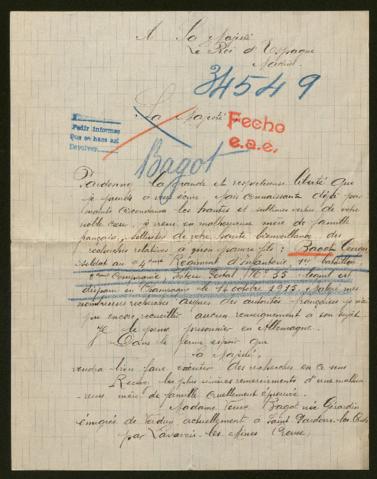 A Sa Majesté
Le Roi d'Espagne
Madrid
34549
Sa Majesté
Pedir informes
Devolver
Fecho
e.a.e.
Bagot
Pardonnez la grande et respectueuse liberté que
je prends à mais connaissant déjà par
les hautes et sublimes vertus de votre
noble cœur, je viens, en malheureuse mère de famille
française, solliciter de votre haute bienveillance des
recherches relatives à mon pauvre fils : Bagot
soldat au Régiment d'infanterie, 1er bataillon
2ème Compagnie, Secteur Postal No 55
disparu en le 15 octobre 1915. Malgré mes
nombreuses recherches auprès des autorités françaises je n'ai
pas encore recueilli aucun renseignement à son sujet.
Je le pense prisonnier en Allemagne.
Dans le ferme espoir que
Sa Majesté,
voudra bien faire exécuter des recherches en ce sens
Recevez les plus sincères remerciements d'une malheu-
reuse mère de famille cruellement éprouvée.
Madame Veuve Bagot née Girardin
émigrée de Verdun actuellement à Saint Pardoux-les-Cards
par Lavaveix-les-Mines (Creuse)